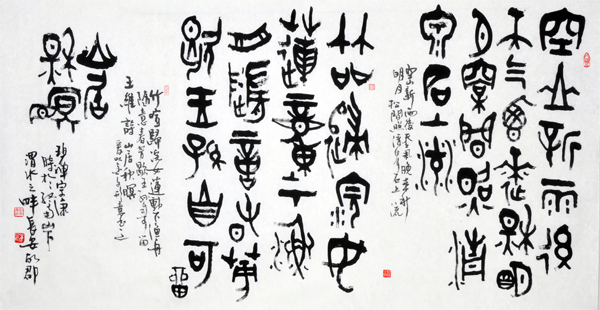 空山新雨後
天氣晚來秋明
月松間照清
泉石上流
空山新雨後天氣晚來秋
明月松間照清泉石上流
竹喧歸浣女
蓮動下漁
舟隨意春芳
歇王孫自可
留
竹喧歸浣女蓮動下漁舟
隨意春芳歇王孫自可留
王維詩山居秋暝
山居
秋暝
山下
渭水之畔長安